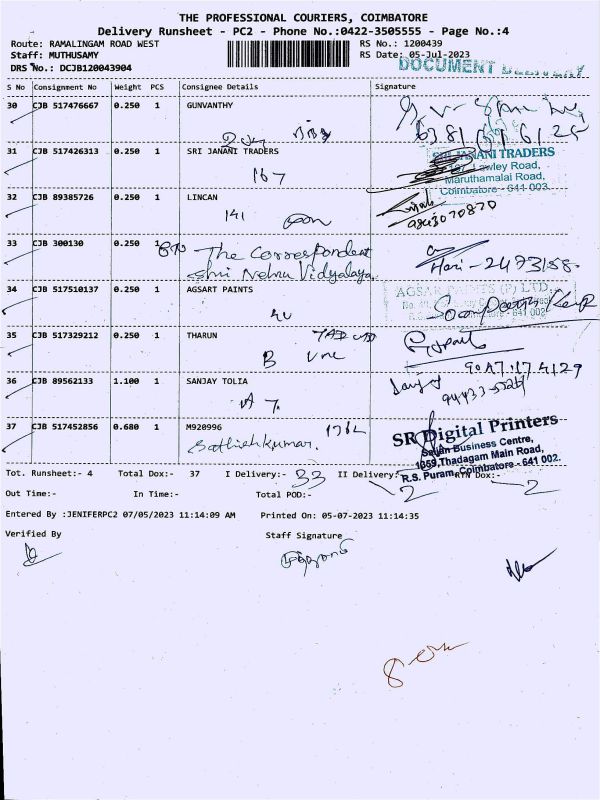 THE PROFESSIONAL COURIERS, COIMBATORE
Delivery Runsheet - PC2 - Phone No.:0422-3505555 - Page No.:4
Route: RAMALINGAM ROAD WEST RS No.: 1200439
Staff: MUTHUSAMY RS Date: 05-Jul-2023
DRS No.: DCJB120043904 DOCUMENT DELIVERY
S No Consignment No Weight PCS Consignee Details Signature
30 CJB 517476667 0.250 1 GUNVANTHY
31 CJB 517426313 0.250 1 SRI JANANI TRADERS SRI JANANI TRADERS
Lawley Road,
167 Maruthamalai Road,
Coimbatore - 641 003.
32 CJB 89385726 0.250 1 LINCAN
141 9843070870
33 CJB 300130 0.250 1 The Correspondent
Shri Nehru Vidyalaya Hari - 2473158
34 CJB 517510137 0.250 1 AGSART PAINTS AGSAR PAINTS (P) LTD.
35 CJB 517329212 0.250 1 THARUN
B
36 CJB 89562133 1.100 1 SANJAY TOLIA
37 CJB 517452856 0.680 1 M920996
Sathishkumar SR Digital Printers
Business Centre,
1359, Thadagam Main Road,
R.S. Puram, Coimbatore - 641 002.
Tot. Runsheet:- 4 Total Dox:- 37 I Delivery:- 33 II Delivery:- 2 RTN Dox:- 2
Out Time:- In Time:- Total POD:-
Entered By :JENIFERPC2 07/05/2023 11:14:09 AM Printed On: 05-07-2023 11:14:35
Verified By Staff Signature